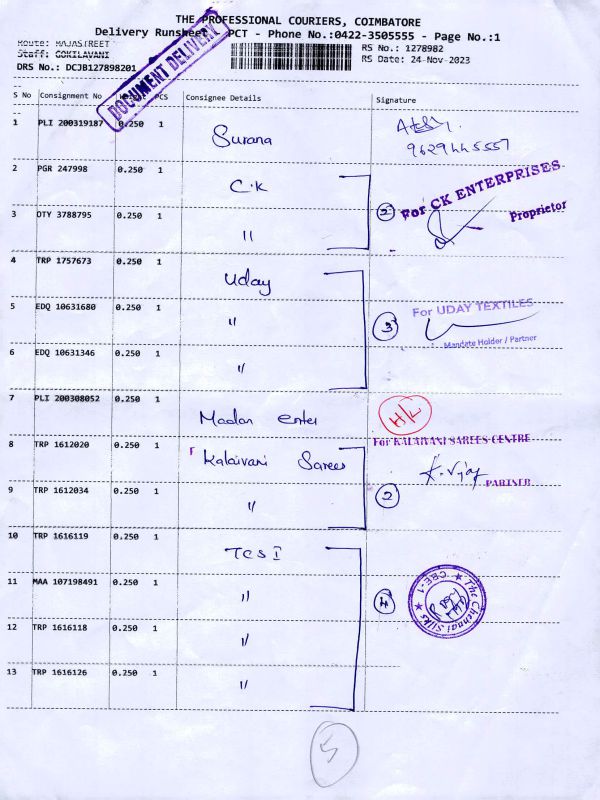 THE PROFESSIONAL COURIERS, COIMBATORE
Delivery Runsheet PCT - Phone No.:0422-3505555 - Page No.:1
Route: RAJASTREET RS No.: 1278982
Staff: GOKILAVANI RS Date: 24-Nov-2023
DRS No.: DCJB127898201
DOCUMENT DELIVERY
S No Consignment No Weight PCS Consignee Details Signature
1 PLI 200319187 0.250 1 Surana
9629445557
2 PGR 247998 0.250 1 C.K
3 OTY 3788795 0.250 1 "
2 For CK ENTERPRISES
Proprietor
4 TRP 1757673 0.250 1 Uday
5 EDQ 10631680 0.250 1 "
6 EDQ 10631346 0.250 1 "
3 For UDAY TEXTILES
Mandate Holder / Partner
7 PLI 200308052 0.250 1 Madan enter H/L
8 TRP 1612020 0.250 1 Kalaivani Sarees
9 TRP 1612034 0.250 1 "
2 For KALAIVANI SAREES CENTRE
K. Vijay
PARTNER
10 TRP 1616119 0.250 1 TCS I
11 MAA 107198491 0.250 1 "
12 TRP 1616118 0.250 1 "
13 TRP 1616126 0.250 1 "
4 The Chennai Silks CBE-1
5